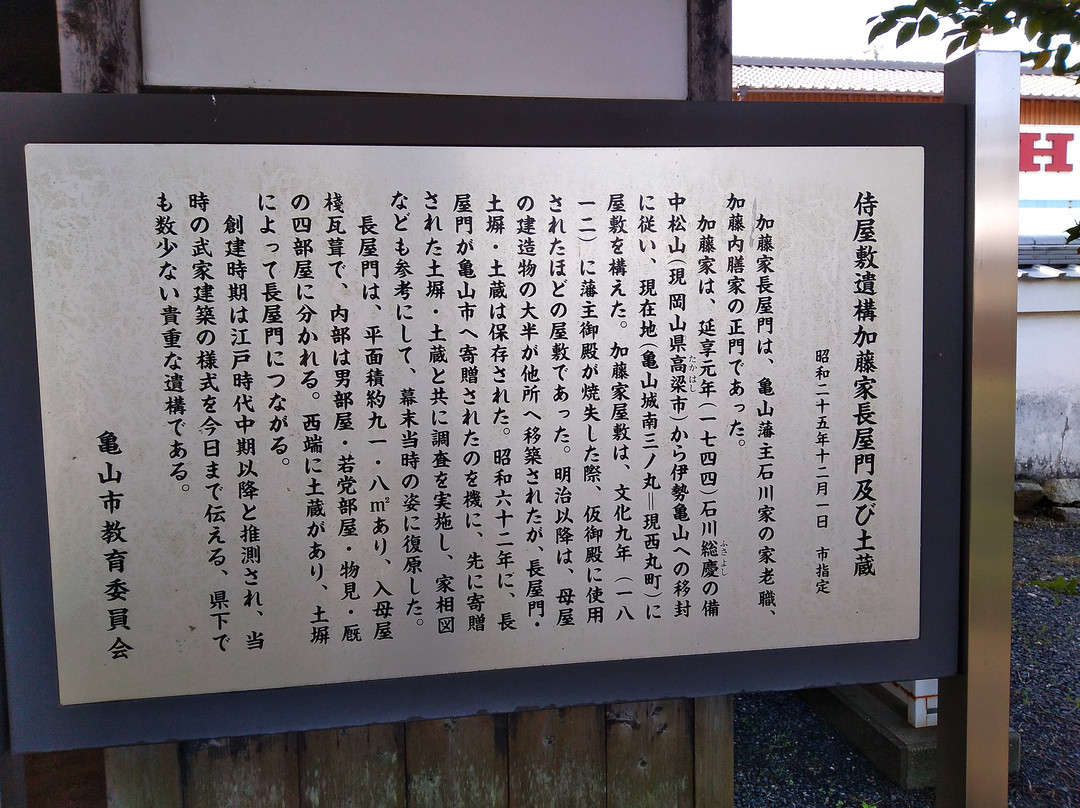 侍屋敷遺構加藤家長屋門及び土蔵
昭和二十五年十二月一日　市指定
加藤家長屋門は、亀山藩主石川家の家老職、
加藤内膳家の正門であった。
加藤家は、延享元年（一七四四）石川総慶の備
ふさよし
中松山（現 岡山県高梁市）から伊勢亀山への移封
たかはし
に従い、現在地（亀山城南三ノ丸＝現西丸町）に
屋敷を構えた。加藤家屋敷は、文化九年（一八
一二）に藩主御殿が焼失した際、仮御殿に使用
されたほどの屋敷であった。明治以降は、母屋
の建造物の大半が他所へ移築されたが、長屋門・
土塀・土蔵は保存された。昭和六十二年に、長
屋門が亀山市へ寄贈されたのを機に、先に寄贈
された土塀・土蔵と共に調査を実施し、家相図
なども参考にして、幕末当時の姿に復原した。
長屋門は、平面積約九一・八㎡あり、入母屋
棧瓦葺で、内部は男部屋・若党部屋・物見・厩
の四部屋に分かれる。西端に土蔵があり、土塀
によって長屋門につながる。
創建時期は江戸時代中期以降と推測され、当
時の武家建築の様式を今日まで伝える、県下で
も数少ない貴重な遺構である。
亀山市教育委員会
H